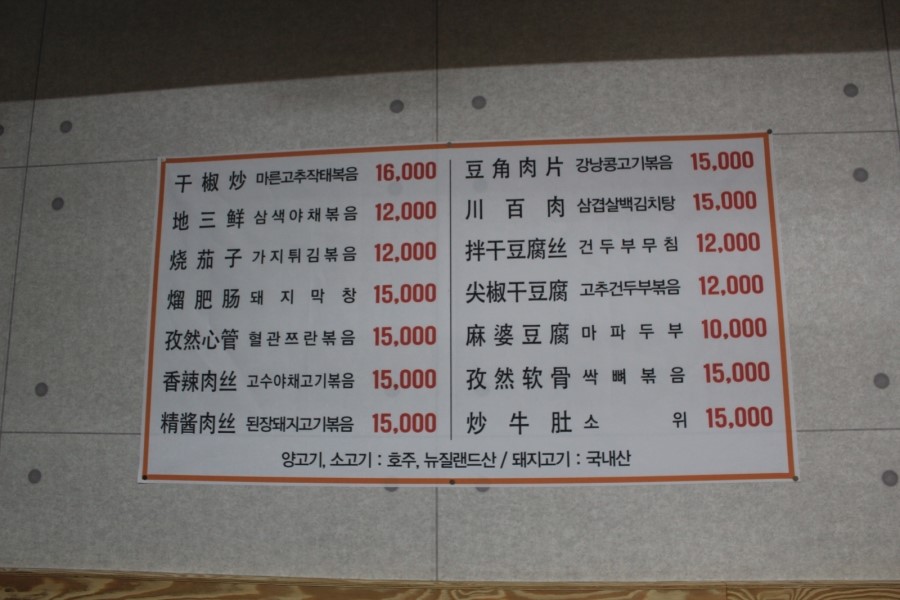 干椒炒 마른고추작태볶음 16,000
地三鲜 삼색야채볶음 12,000
烧茄子 가지튀김볶음 12,000
熘肥肠 돼지막창 15,000
孜然心管 혈관쯔란볶음 15,000
香辣肉丝 고수야채고기볶음 15,000
精酱肉丝 된장돼지고기볶음 15,000
豆角肉片 강낭콩고기볶음 15,000
川百肉 삼겹살백김치탕 15,000
拌干豆腐丝 건두부무침 12,000
尖椒干豆腐 고추건두부볶음 12,000
麻婆豆腐 마파두부 10,000
孜然软骨 싹뼈볶음 15,000
炒牛肚 소위 15,000
양고기, 소고기 : 호주, 뉴질랜드산 / 돼지고기 : 국내산